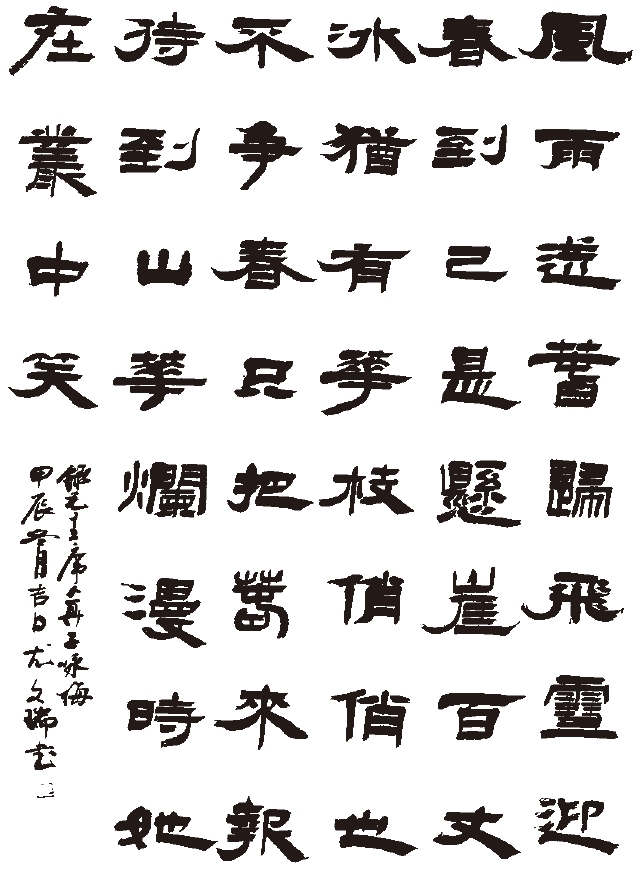 風雨送春歸飛雪迎
春到已是懸崖百丈
冰猶有華枝俏俏也
不爭春只把春來報
待到山華爛漫時她
在叢中笑
錄毛主席卜算子詠梅
甲辰月吉日尤文瑞书